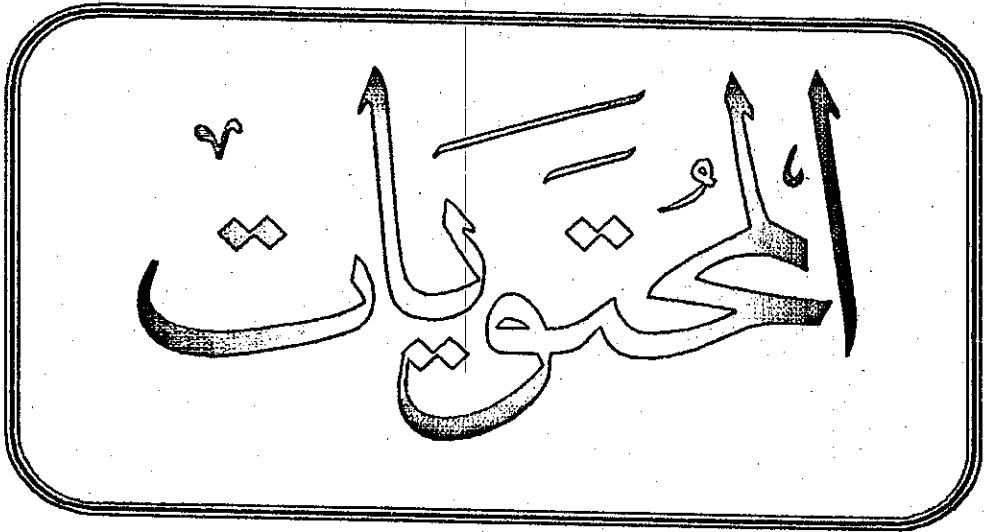 المحتويات